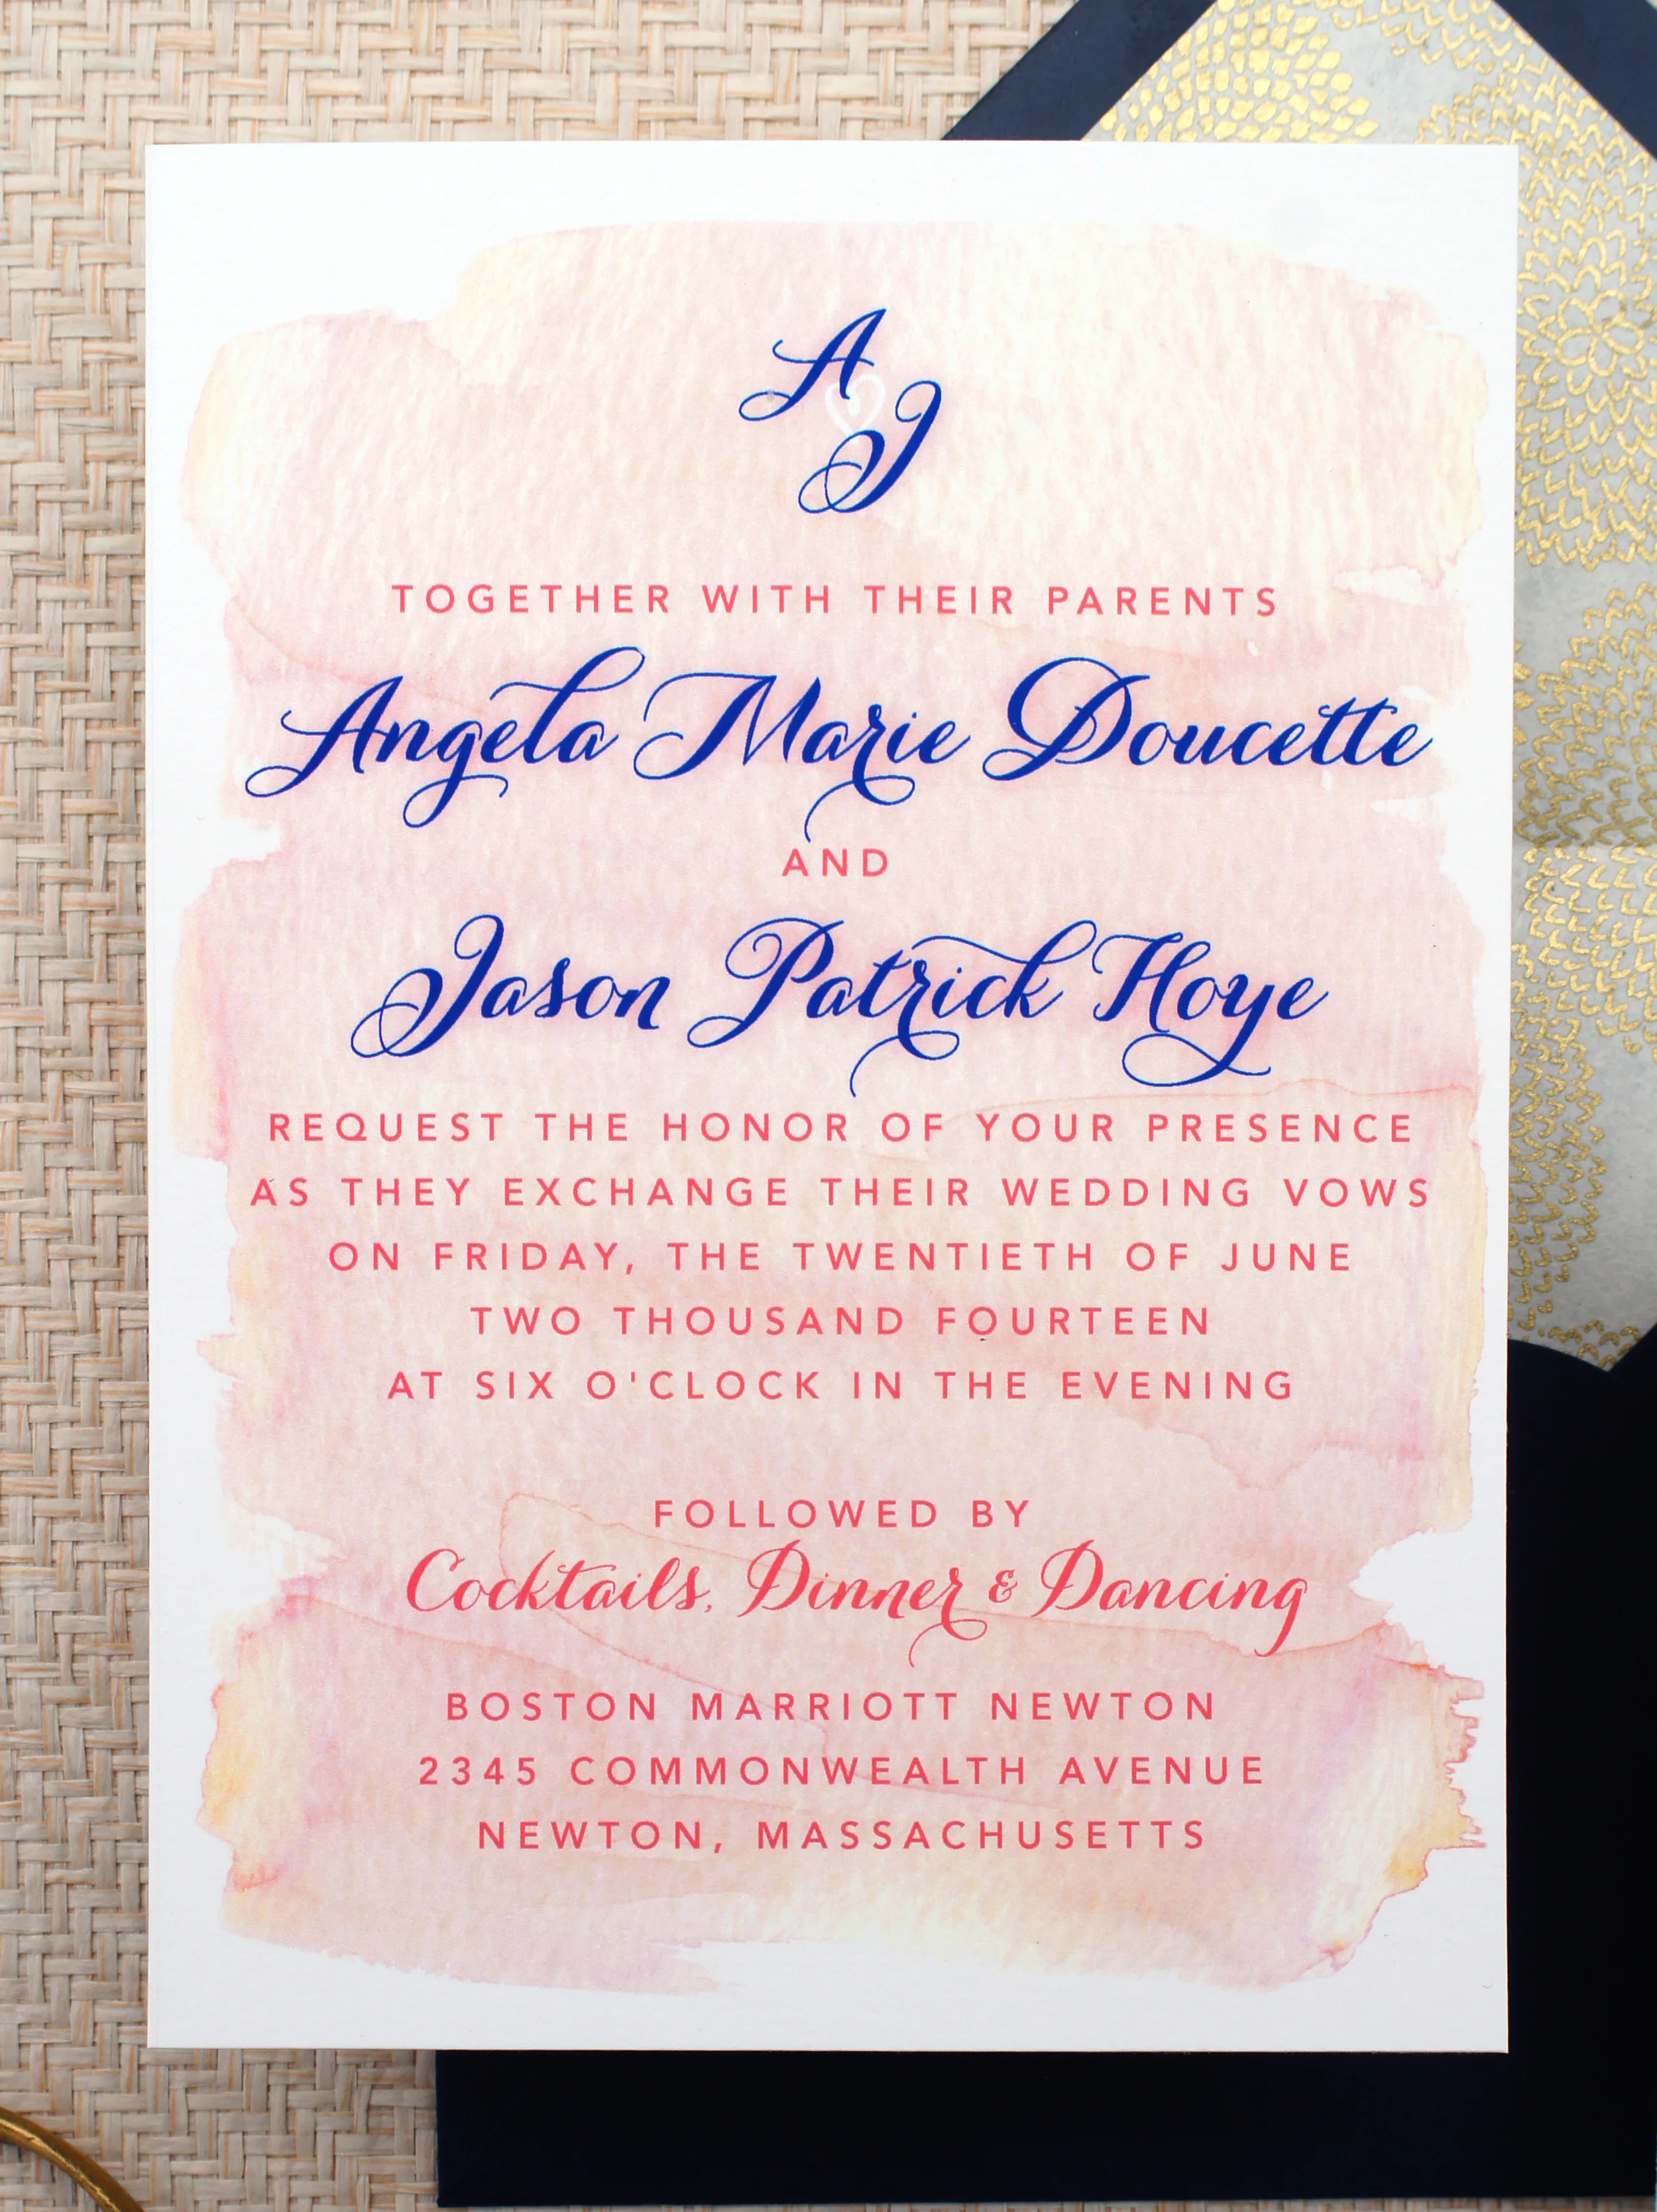 A
J
TOGETHER WITH THEIR PARENTS
Angela Marie Doucette
AND
Jason Patrick Hoye
REQUEST THE HONOR OF YOUR PRESENCE
AS THEY EXCHANGE THEIR WEDDING VOWS
ON FRIDAY, THE TWENTIETH OF JUNE
TWO THOUSAND FOURTEEN
AT SIX O'CLOCK IN THE EVENING
FOLLOWED BY
Cocktails, Dinner & Dancing
BOSTON MARRIOTT NEWTON
2345 COMMONWEALTH AVENUE
NEWTON, MASSACHUSETTS